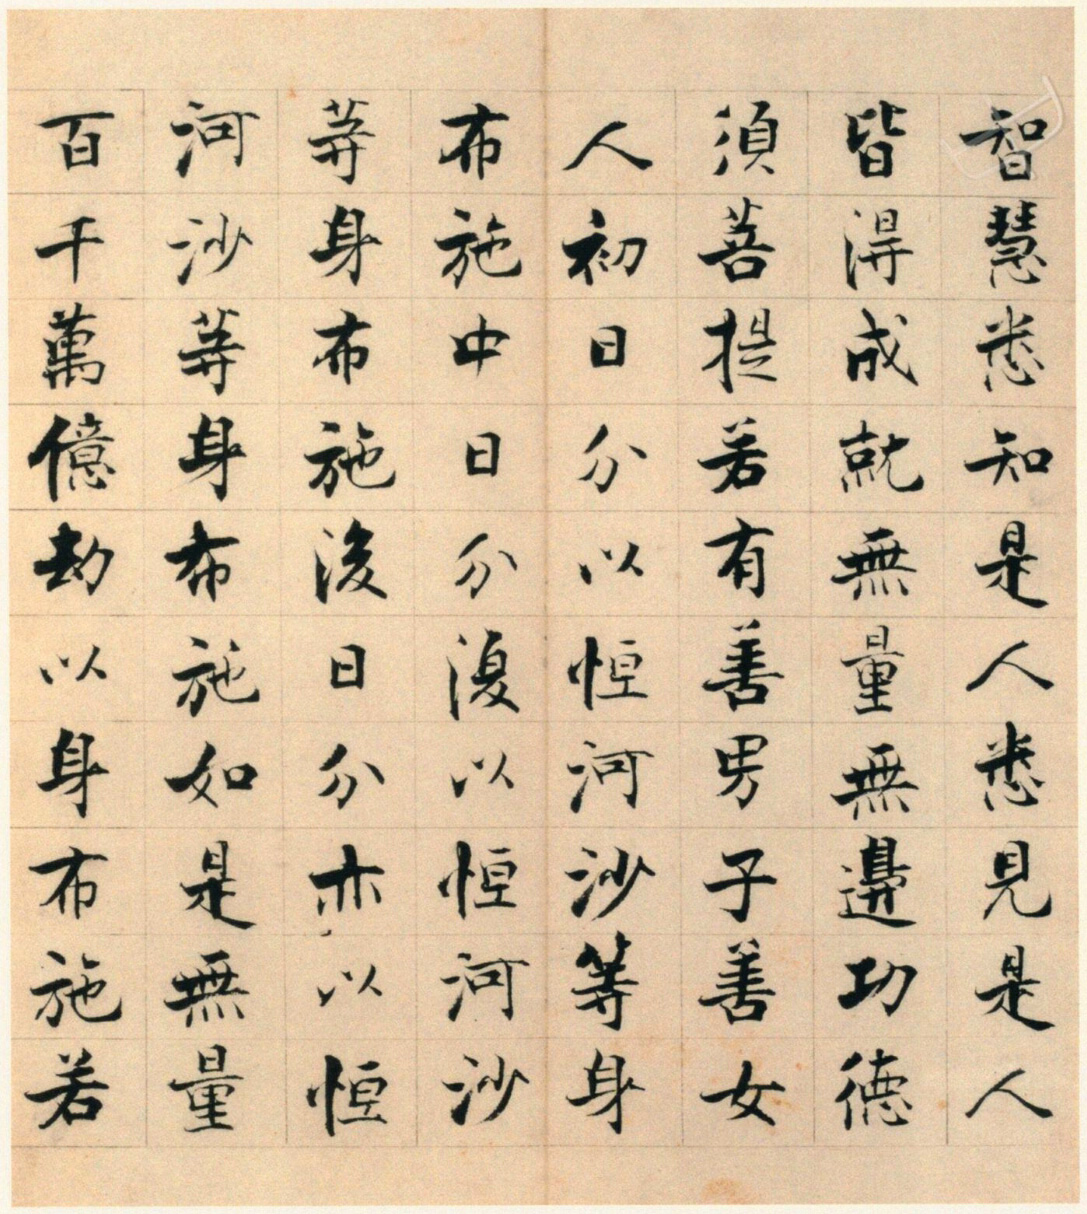 智慧悉知是人悉見是人
皆得成就無量無邊功德
須菩提若有善男子善女
人初日分以恒河沙等身
布施中日分復以恒河沙
等身布施後日分亦以恒
河沙等身布施如是無量
百千萬億劫以身布施若